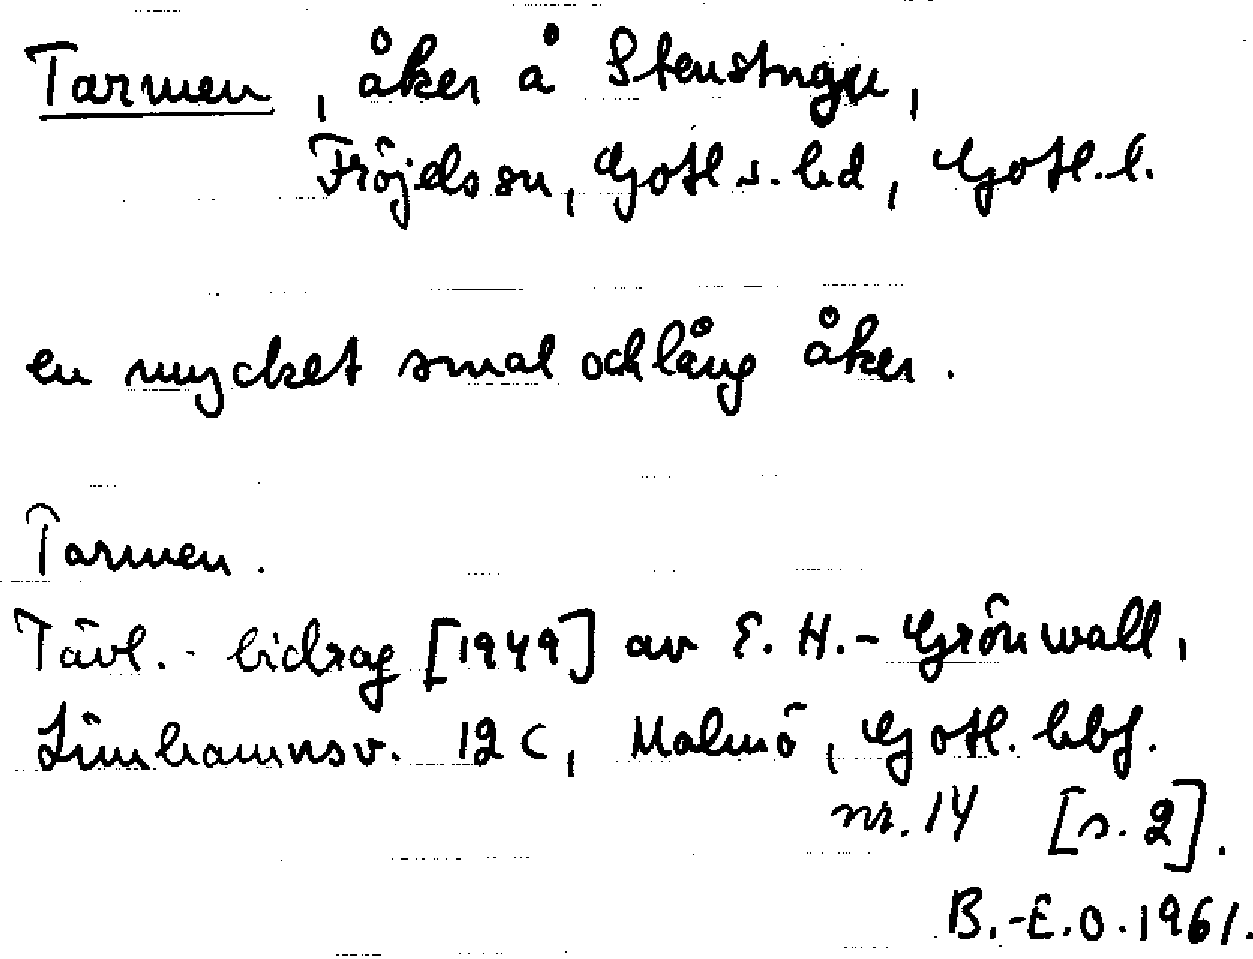 Tarmen, åker å Stenstugu,
Fröjels sn, Gotl s. hd, Gotl. l.
en mycket smal och lång åker.
Tarmen.
Tävl. - bidrag [1949] av E. H.- Grönwall,
Limhamnsv. 12 C, Malmö, Gotl. hbf.
nr. 14 [s. 2].
B.-E.O. 1961.